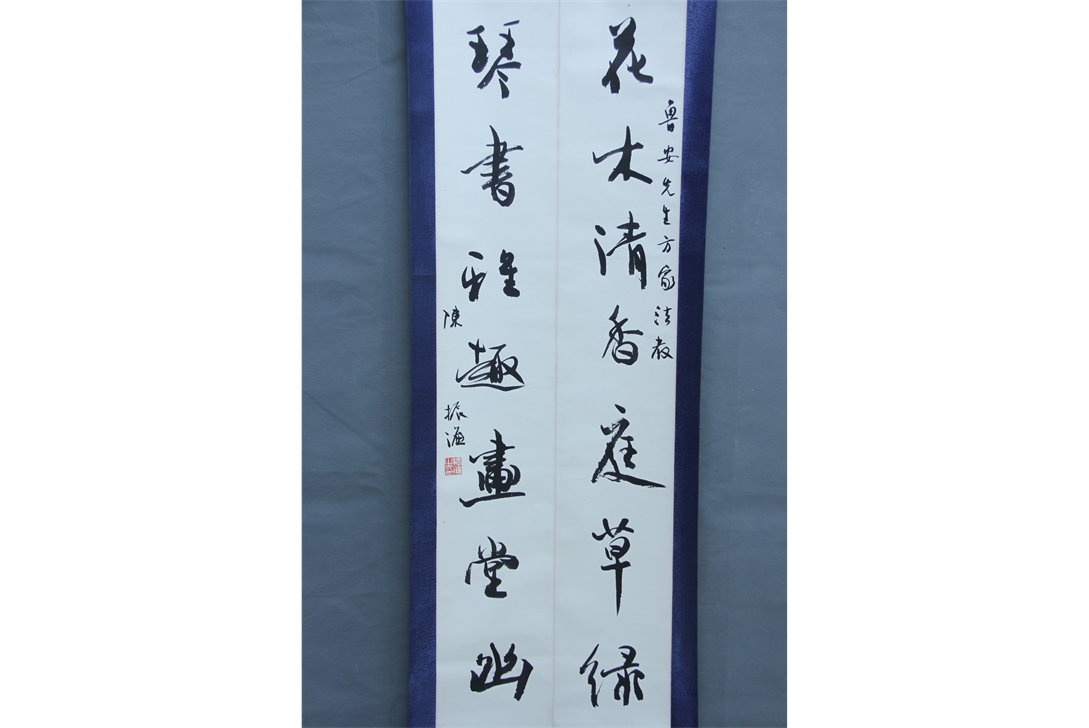 花木清香庭草绿
魯安先生方家法教
琴書雅趣畫堂幽
陳振濂